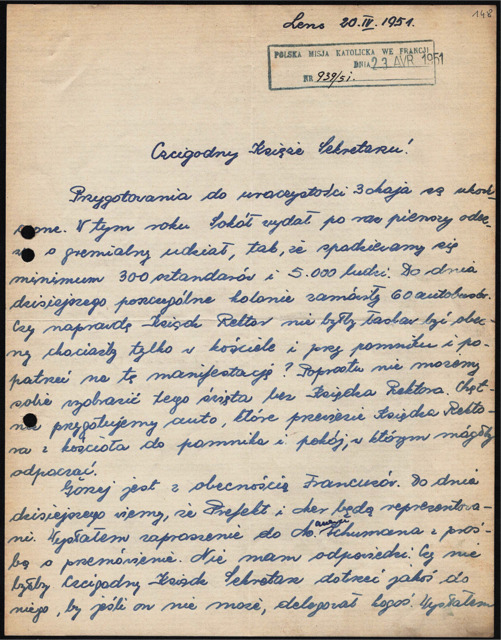 148
Lens 20.IV.1951.
POLSKA MISJA KATOLICKA WE FRANCJI
DNIA 23 AVR 1951
NR 939/51.
Czcigodny Księże Sekretarzu!
Przygotowania do uroczystości 3 Maja są ukoń-
czone. W tym roku Sokół wydał po raz pierwszy odez-
wę o gremialny udział, tak, że spodziewamy się
minimum 300 sztandarów i 5.000 ludzi. Do dnia
dzisiejszego poszczególne kolonie zamówiły 60 autobusów.
Czy naprawdę Ksiądz Rektor nie byłby łaskaw być obec-
ny chociażby tylko w kościele i przy pomniku i po-
patrzeć na tę manifestację? Poprostu nie możemy
sobie wyobrazić tego święta bez Księdza Rektora. Chęt-
nie przygotujemy auto, które przewiezie Księdza Rekto-
ra z kościoła do pomnika i pokój, w którym mógłby
odpocząć.
Gorzej jest z obecnością Francuzów. Do dnia
dzisiejszego wiemy, że Prefekt i mer będą reprezentowa-
ni. Wysłałem zaproszenie do Schumana z proś-
bą o przemówienie. Nie mam odpowiedzi. Czy nie
byłby Czcigodny Ksiądz Sekretarz dotrzeć jakoś do
niego, by jeśli on nie może, delegował kogoś. Wysłałem